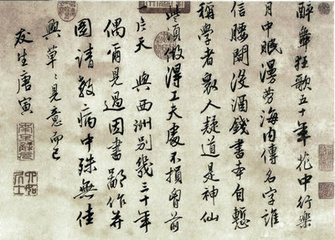 醉舞狂歌五十年花中行樂
月中眠漫勞海内傳名字誰
信腰間沒酒錢書本自慙
稱學者衆人疑道是神仙
些須做得工夫處不損胷前
一片天 與西洲別幾三十年
偶爾見過因書鄙作并
圖請敎病中殊無佳
興草〻見意而已
友生唐寅